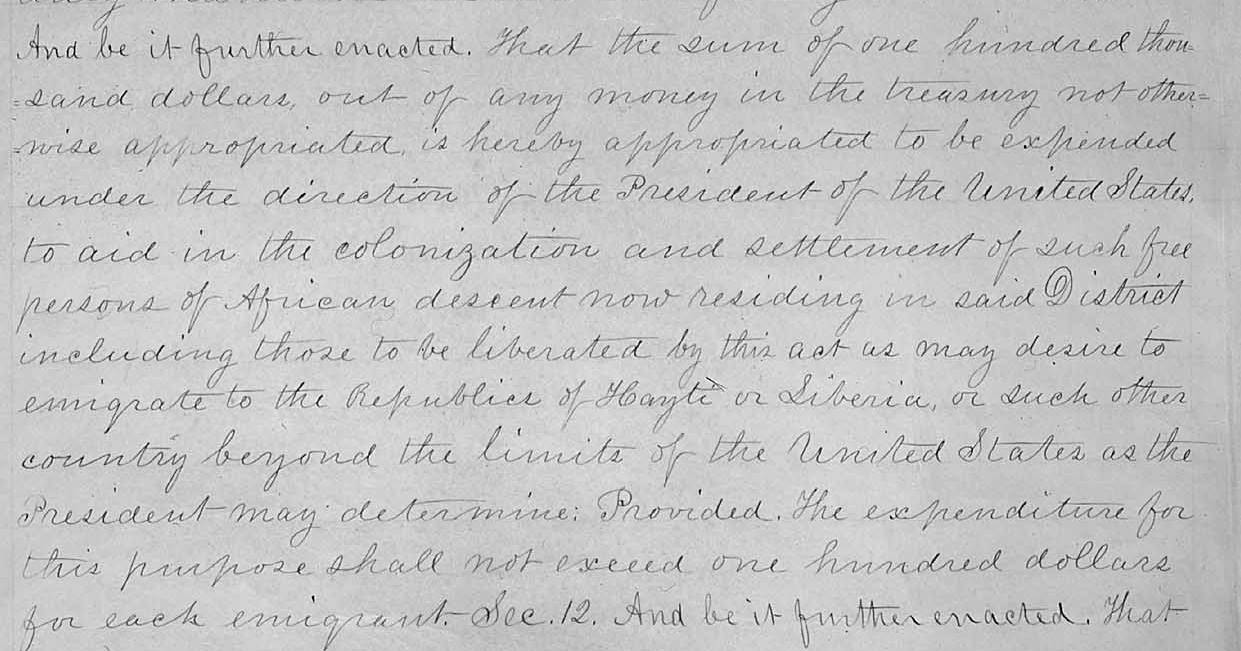 And be it further enacted. That the sum of one hundred thou-
=sand dollars, out of any money in the treasury not other=
=wise appropriated, is hereby appropriated to be expended
under the direction of the President of the United States,
to aid in the colonization and settlement of such free
persons of African descent now residing in said District
including those to be liberated by this act as may desire to
emigrate to the Republics of Hayti or Liberia, or such other
country beyond the limits of the United States as the
President may determine: Provided. The expenditure for
this purpose shall not exceed one hundred dollars
for each emigrant. Sec. 12. And be it further enacted. That